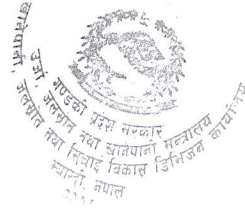 गण्डकी प्रदेश सरकार
उर्जा, जलस्रोत तथा खानेपानी मन्त्रालय
खानेपानी, जलस्रोत तथा सिंचाई विकास डिभिजन कार्यालय
म्याग्दी, नेपाल